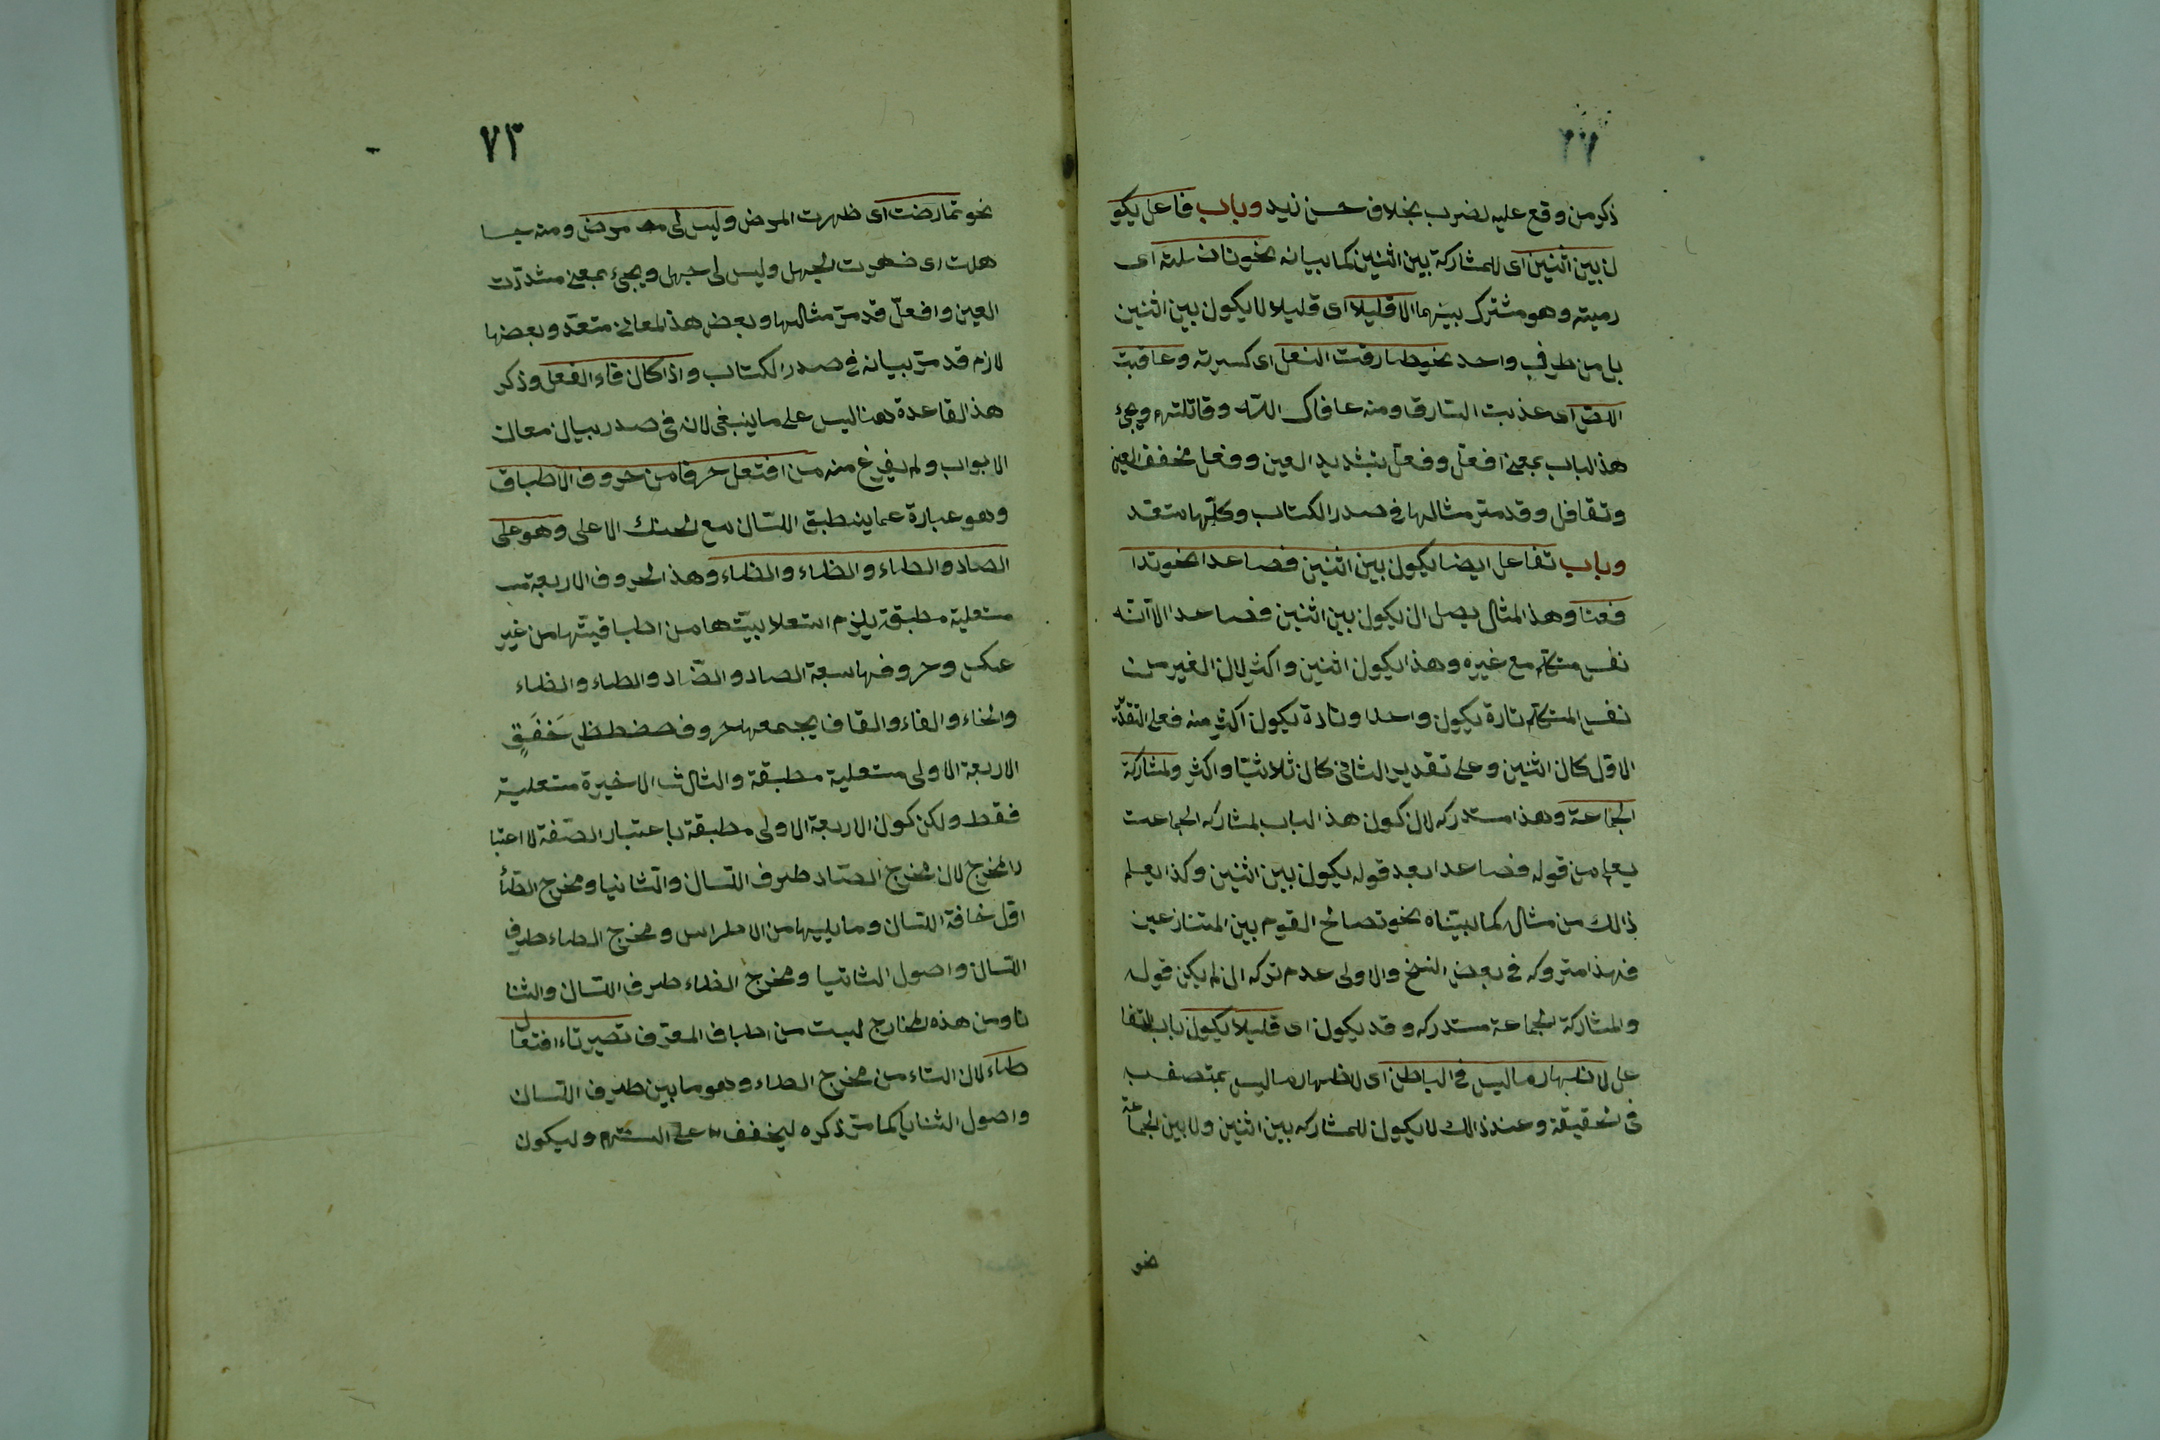 ٧٢
ذكر من وقع عليه لضرب بخلاف حسن زيد وباب فاعل يكو
ن بين اثنين اى للمشاركة بين اثنين كما بيانه نحو ناضلته اى
رميته وهو مشترك بينهما الا قليلا اى قليلا لا يكون بين اثنين
بل من طرف واحد نحو طارقت النعل اى كسرته وعاقبت
اللص اى عذبت السارق ومنه عافاك الله وقاتلتهم ويجئ
هذ الباب بمعنى افعل وفعل بتشديد العين وفعل مخفف العين
وتفاعل وقد مر مثالها فى صدر الكتاب وكلها متعد
وباب تفاعل ايضا يكون بين اثنين فصاعدا نحو تدا
فعنا وهذ المثال يصل ان يكون بين اثنين فصاعدا لانه
نفس متكلم مع غيره وهذا يكون اثنين واكثر لان الغير من
نفس المتكلم تارة يكون واحدا وتارة يكون اكثر منه فعلى التقدير
الاول كان اثنين وعلى تقدير الثانى كان ثلاثيا واكثر ولمشاركة
الجماعة وهذا مستدركه لان كون هذ الباب لمشاركه الجماعت
يعلم من قوله فصاعدا بعد قوله يكون بين اثنين وكذا يعلم
ذالك من مثاله كما بيناه نحو تصالح القوم بين المتنازعين
فهذا متروكه فى بعض النسخ والاولى عدم تركه ان لم يكن قوله
والمشاركة الجماعة مستدركه وقد يكون اى قليلا يكون باب التفا
عل لاظهار ما ليس فى الباطن اى لاظهار ما ليس بمتصف به
فى الحقيقة وعند ذالك لا يكون للمشاركه بين اثنين ولا بين الجماعة
نحو
٧٣
نحو تمارضت اى ظهرت المرض وليس لى مرض ومنه تجا
هلت اى ظهرت الجهل وليس لى جهل ويجئ بمعنى مشددت
العين وافعل قد مر مثالها وبعض هذ المعانى متعد وبعضها
لازم قد مر بيانه فى صدر الكتاب واذا كان فاء الفعل وذكر
هذ القاعدة هنا ليس على ما ينبغى لانه فى صدر بيان معان
الابواب ولم يفرغ منه من افتعل حرفا من حروف الاطباق
وهو عبارة عما ينطبق اللسان مع الحنك الاعلى وهو على
الصاد والطاء والظاء والظاء وهذ الحروف الاربعة مس
متعلية مطبقة يلزم استعلا بيتها من اطباقيتها من غير
عكس وحروفها سبعة الصاد والضاد والطاء والظاء
والخاء والفاء والقاف يجمعها حروف صضطظ خَفَقٍ
الاربعة الاولى متعلية مطبقة والثالث الاخيرة متعلية
فقط ولكن كون الاربعة الاولى مطبقة باعتبار الصفة لا اعتبا
را لمخرج لان مخرج الصاد طرف اللسان والثنايا ومخرج الظأ
اول خافة اللسان وما يليها من الاضراس ومخرج الطاء طرف
اللسان واصول الثنايا ومخرج الظاء طرف اللسان والثنا
نا ومن هذه المخارج ليست من اطباق المعرف تصير تاء افتعل
طاء لان التاء من مخرج الطاء وهو ما بين طرف اللسان
واصول الثنايا كما مر ذكره ليخفف على وليكون